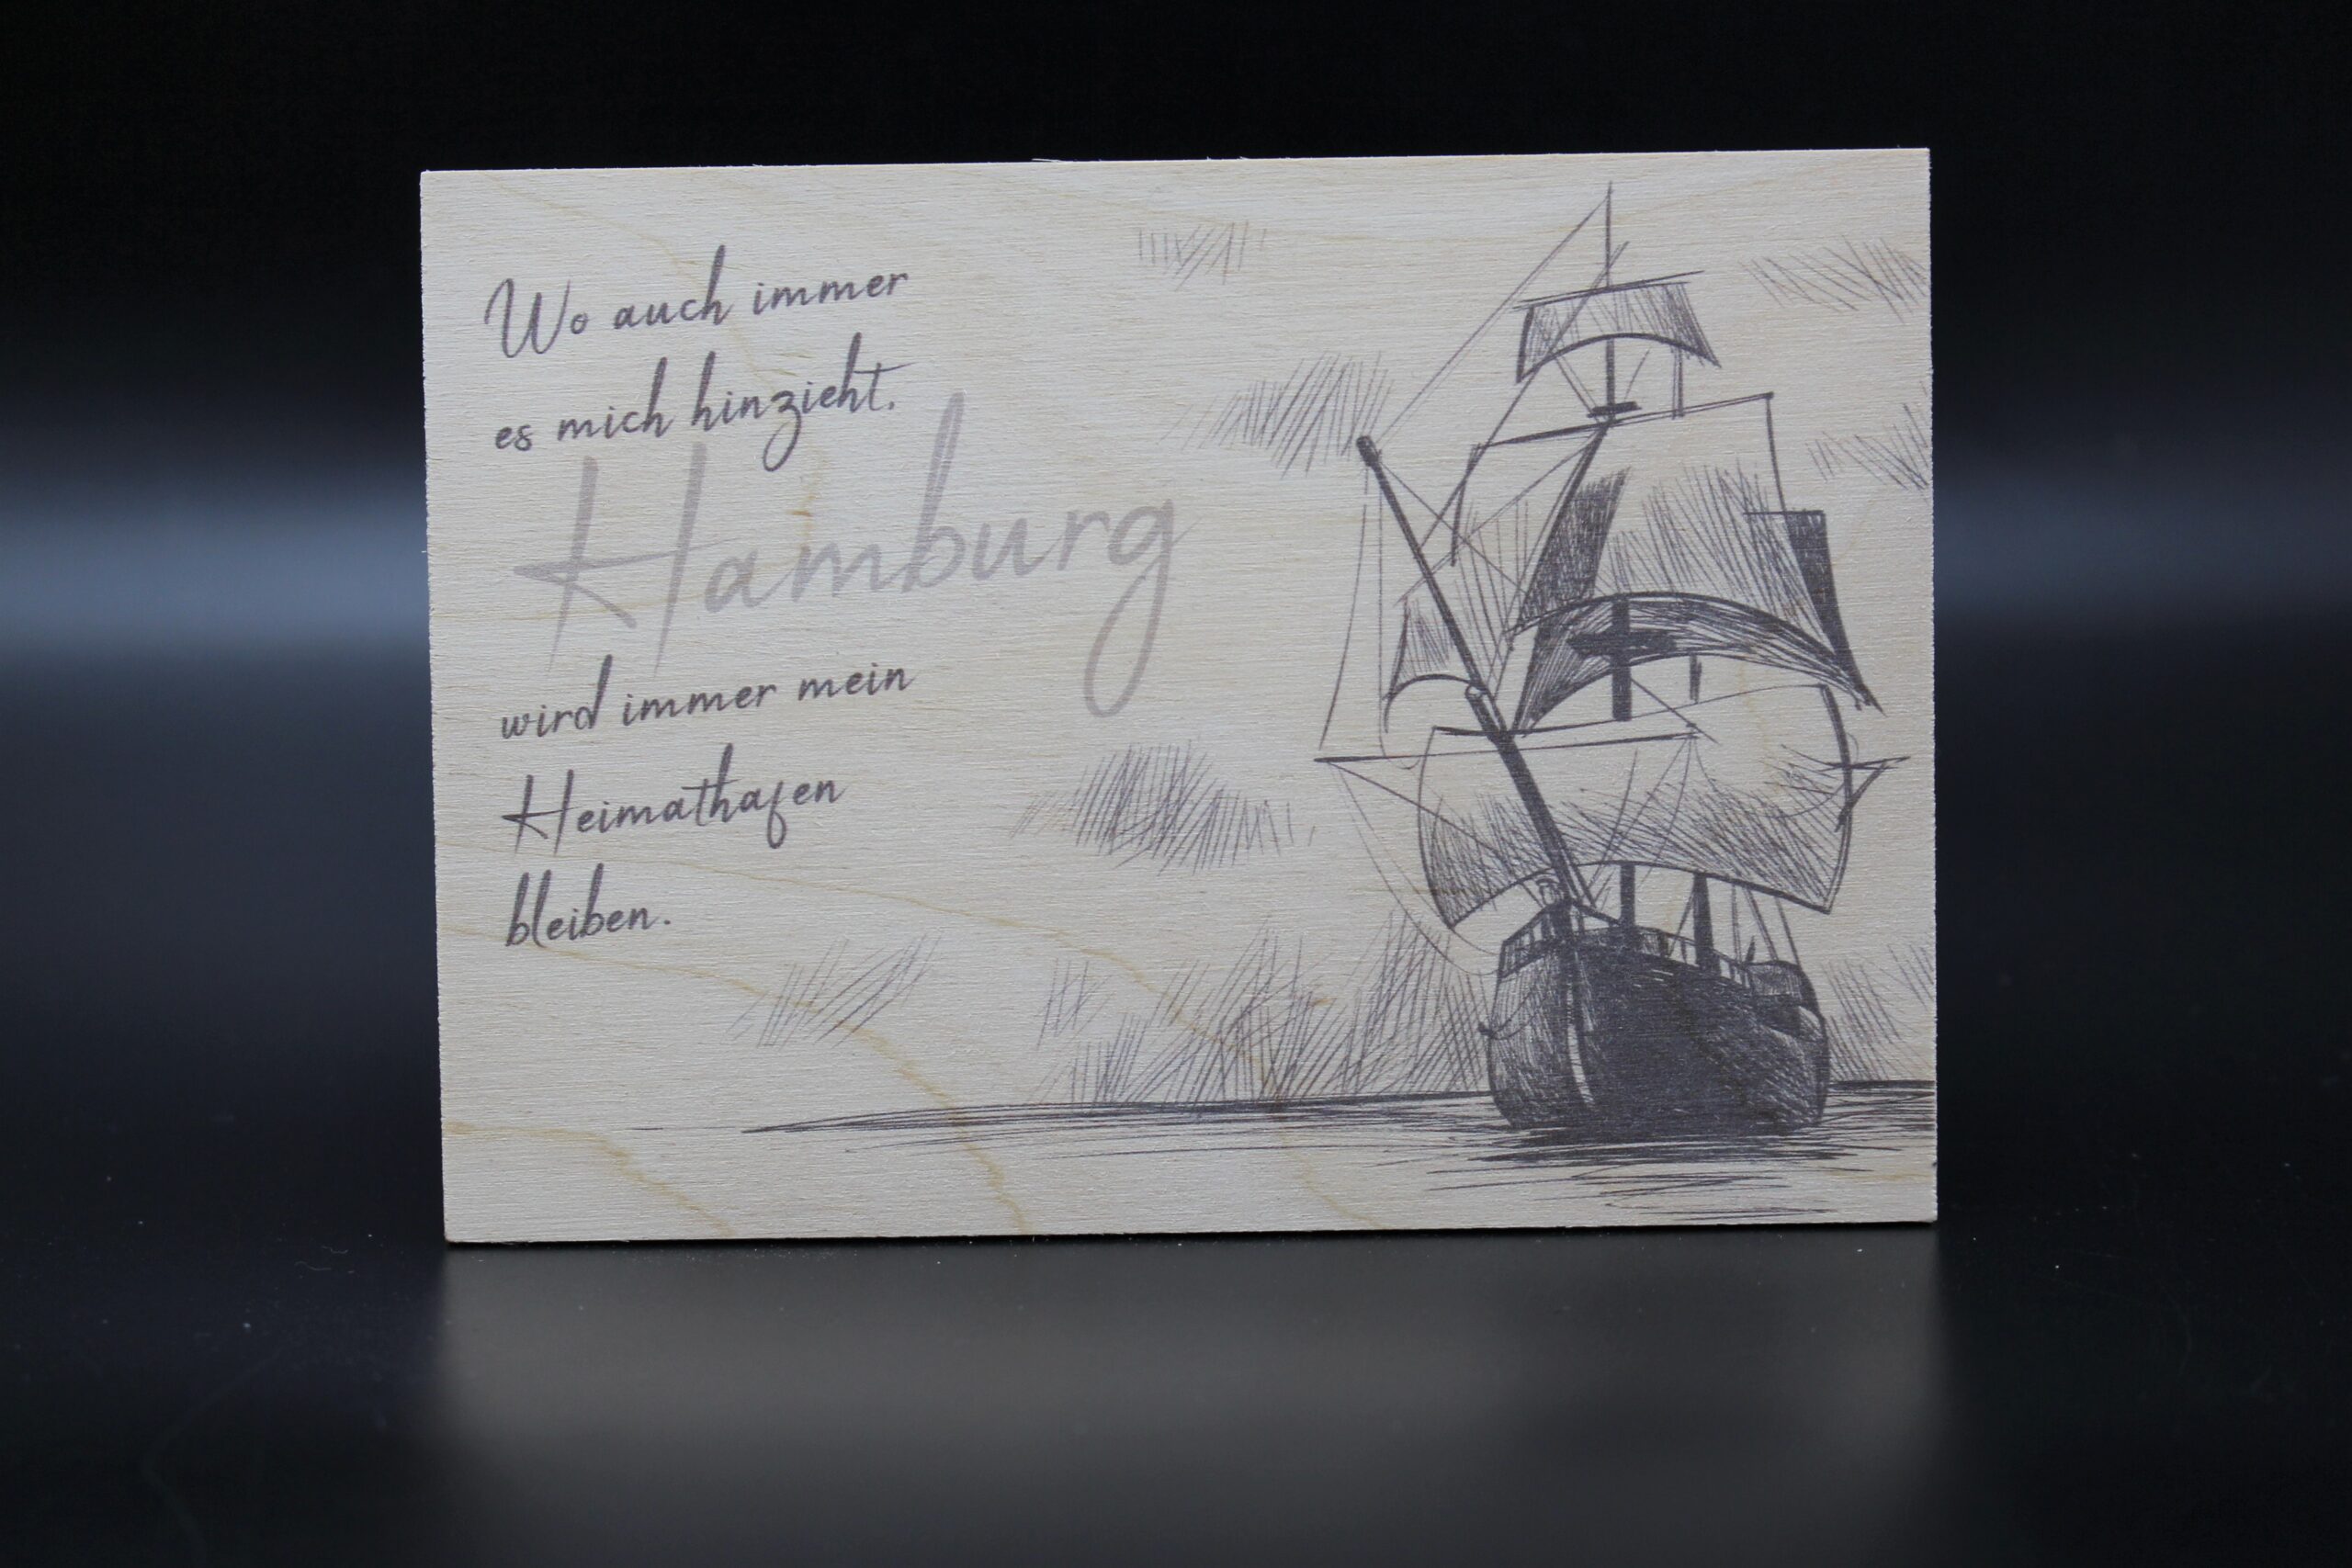 Wo auch immer
es mich hinzieht,
Hamburg
wird immer mein
Heimathafen
bleiben.